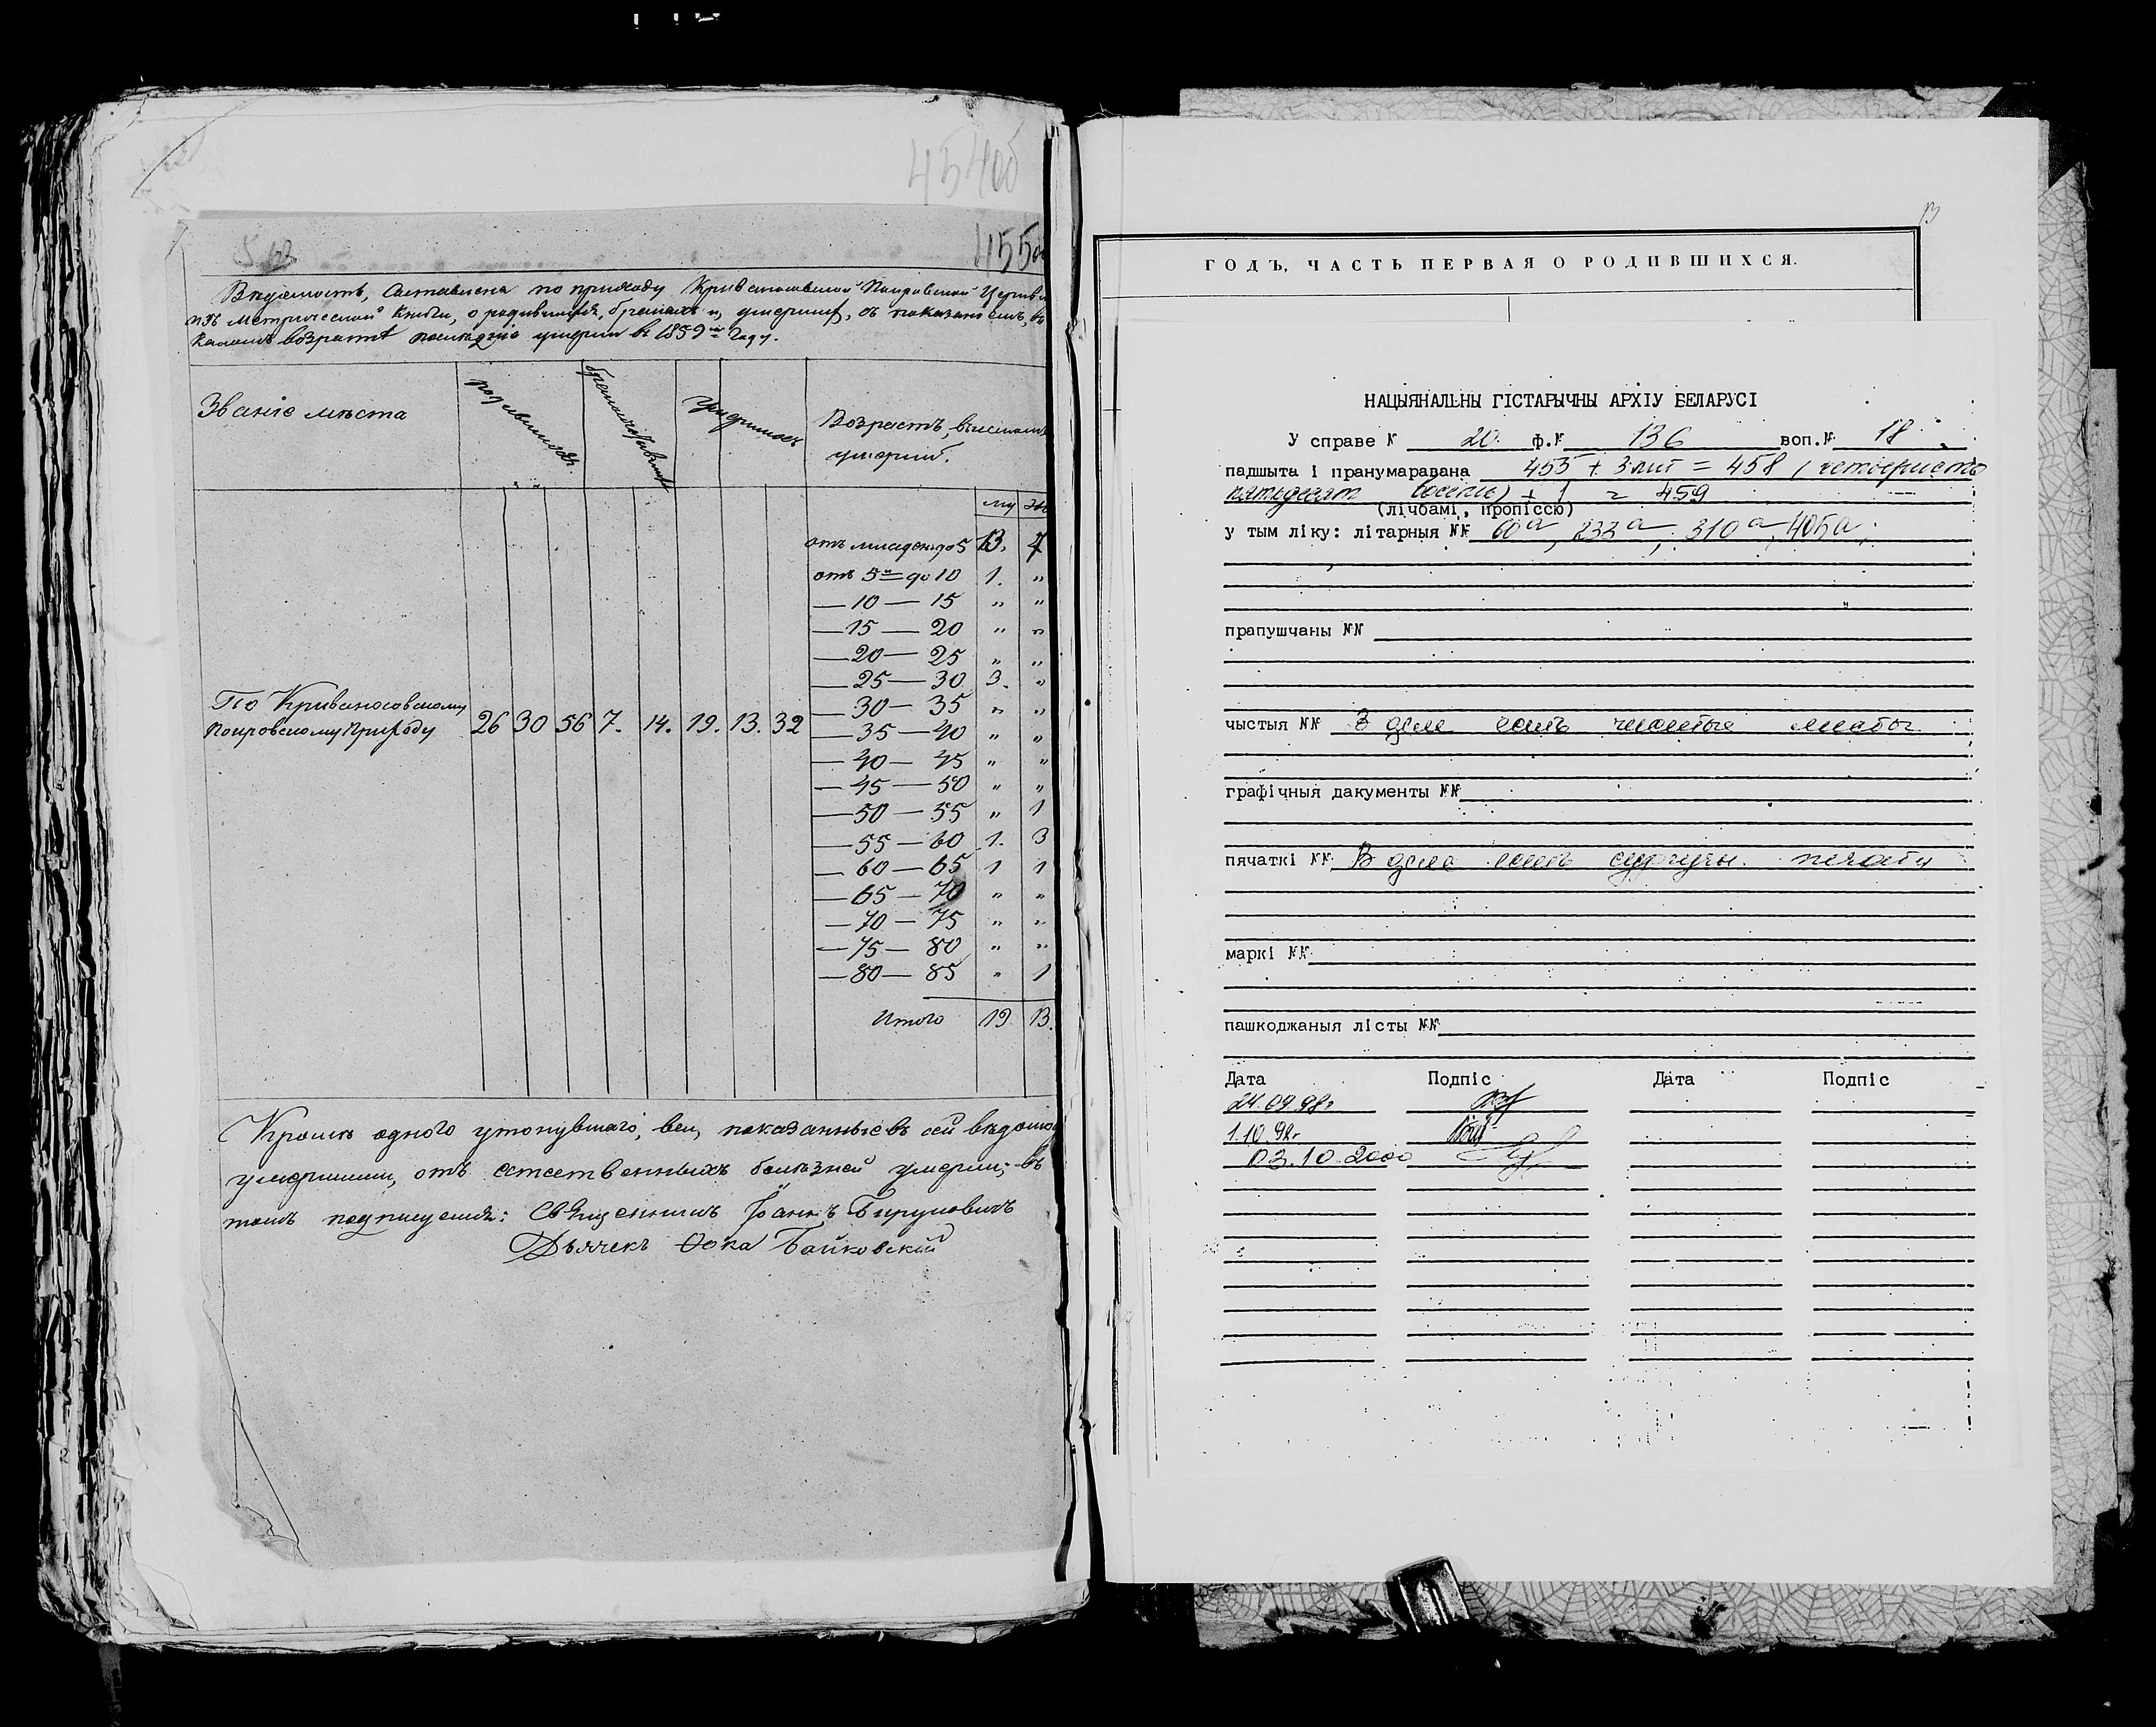 454об
455об
Ведомость, Составлена по приходу Кривоносовской Покровской Церкви
изъ Метрической Книги, о родившихся, бракахъ и умершихъ, съ показаніемъ, въ
какомъ возрастѣ последніе умерли въ 1859м году.
Званіе мѣста
родившихся
бракосочетавшихся
Умершихъ
Возрастъ, въ коемъ
умерли.
му же
отъ младен. до 5 13. 7
отъ 5и до 10 1. „
— 10 — 15 „ „
— 15 — 20 „ „
— 20 — 25 „ „
— 25 — 30 3. „
— 30 — 35 „ „
По Кривоносовскому
Покровскому Приходу 26 30 56 7. 14. 19. 13. 32
— 35 — 40 „ „
— 40 — 45 „ „
— 45 — 50 „ „
— 50 — 55 „ 1
— 55 — 60 1. 3
— 60 — 65 1 1
— 65 — 70 „ „
— 70 — 75 „ „
— 75 — 80 „ „
— 80 — 85 „ 1
Итого 19 13.
Кромѣ одного утонувшаго, всѣ, показанные въ сей ведомо
умершими, отъ естественныхъ болѣзней умерли; въ
томъ подписуемся: Священникъ Іоаннъ
Дьячекъ Ѳока Байковскій
ГОДЪ, ЧАСТЬ ПЕРВАЯ О РОДИВШИХСЯ.
НАЦЫЯНАЛЬНЫ ГІСТАРЫЧНЫ АРХІУ БЕЛАРУСІ
У справе № 20 ф.№ 136 воп.№ 18
падшыта і пранумаравана 455 + 3 лит = 458 (четыреста
пятьдесят восемь) + 1 = 459
(лічбамі, пропіссю)
у тым ліку: літарныя №№ 60а, 233а, 310а, 405а,
прапушчаны №№
чыстыя №№ В деле есть чистые листы
графічныя дакументы №№
пячаткі №№ В деле есть сургучн. печати
маркі №№
пашкоджаныя лісты №№
Дата Подпіс Дата Подпіс
24.09.98г
1.10.98г
03.10.2000